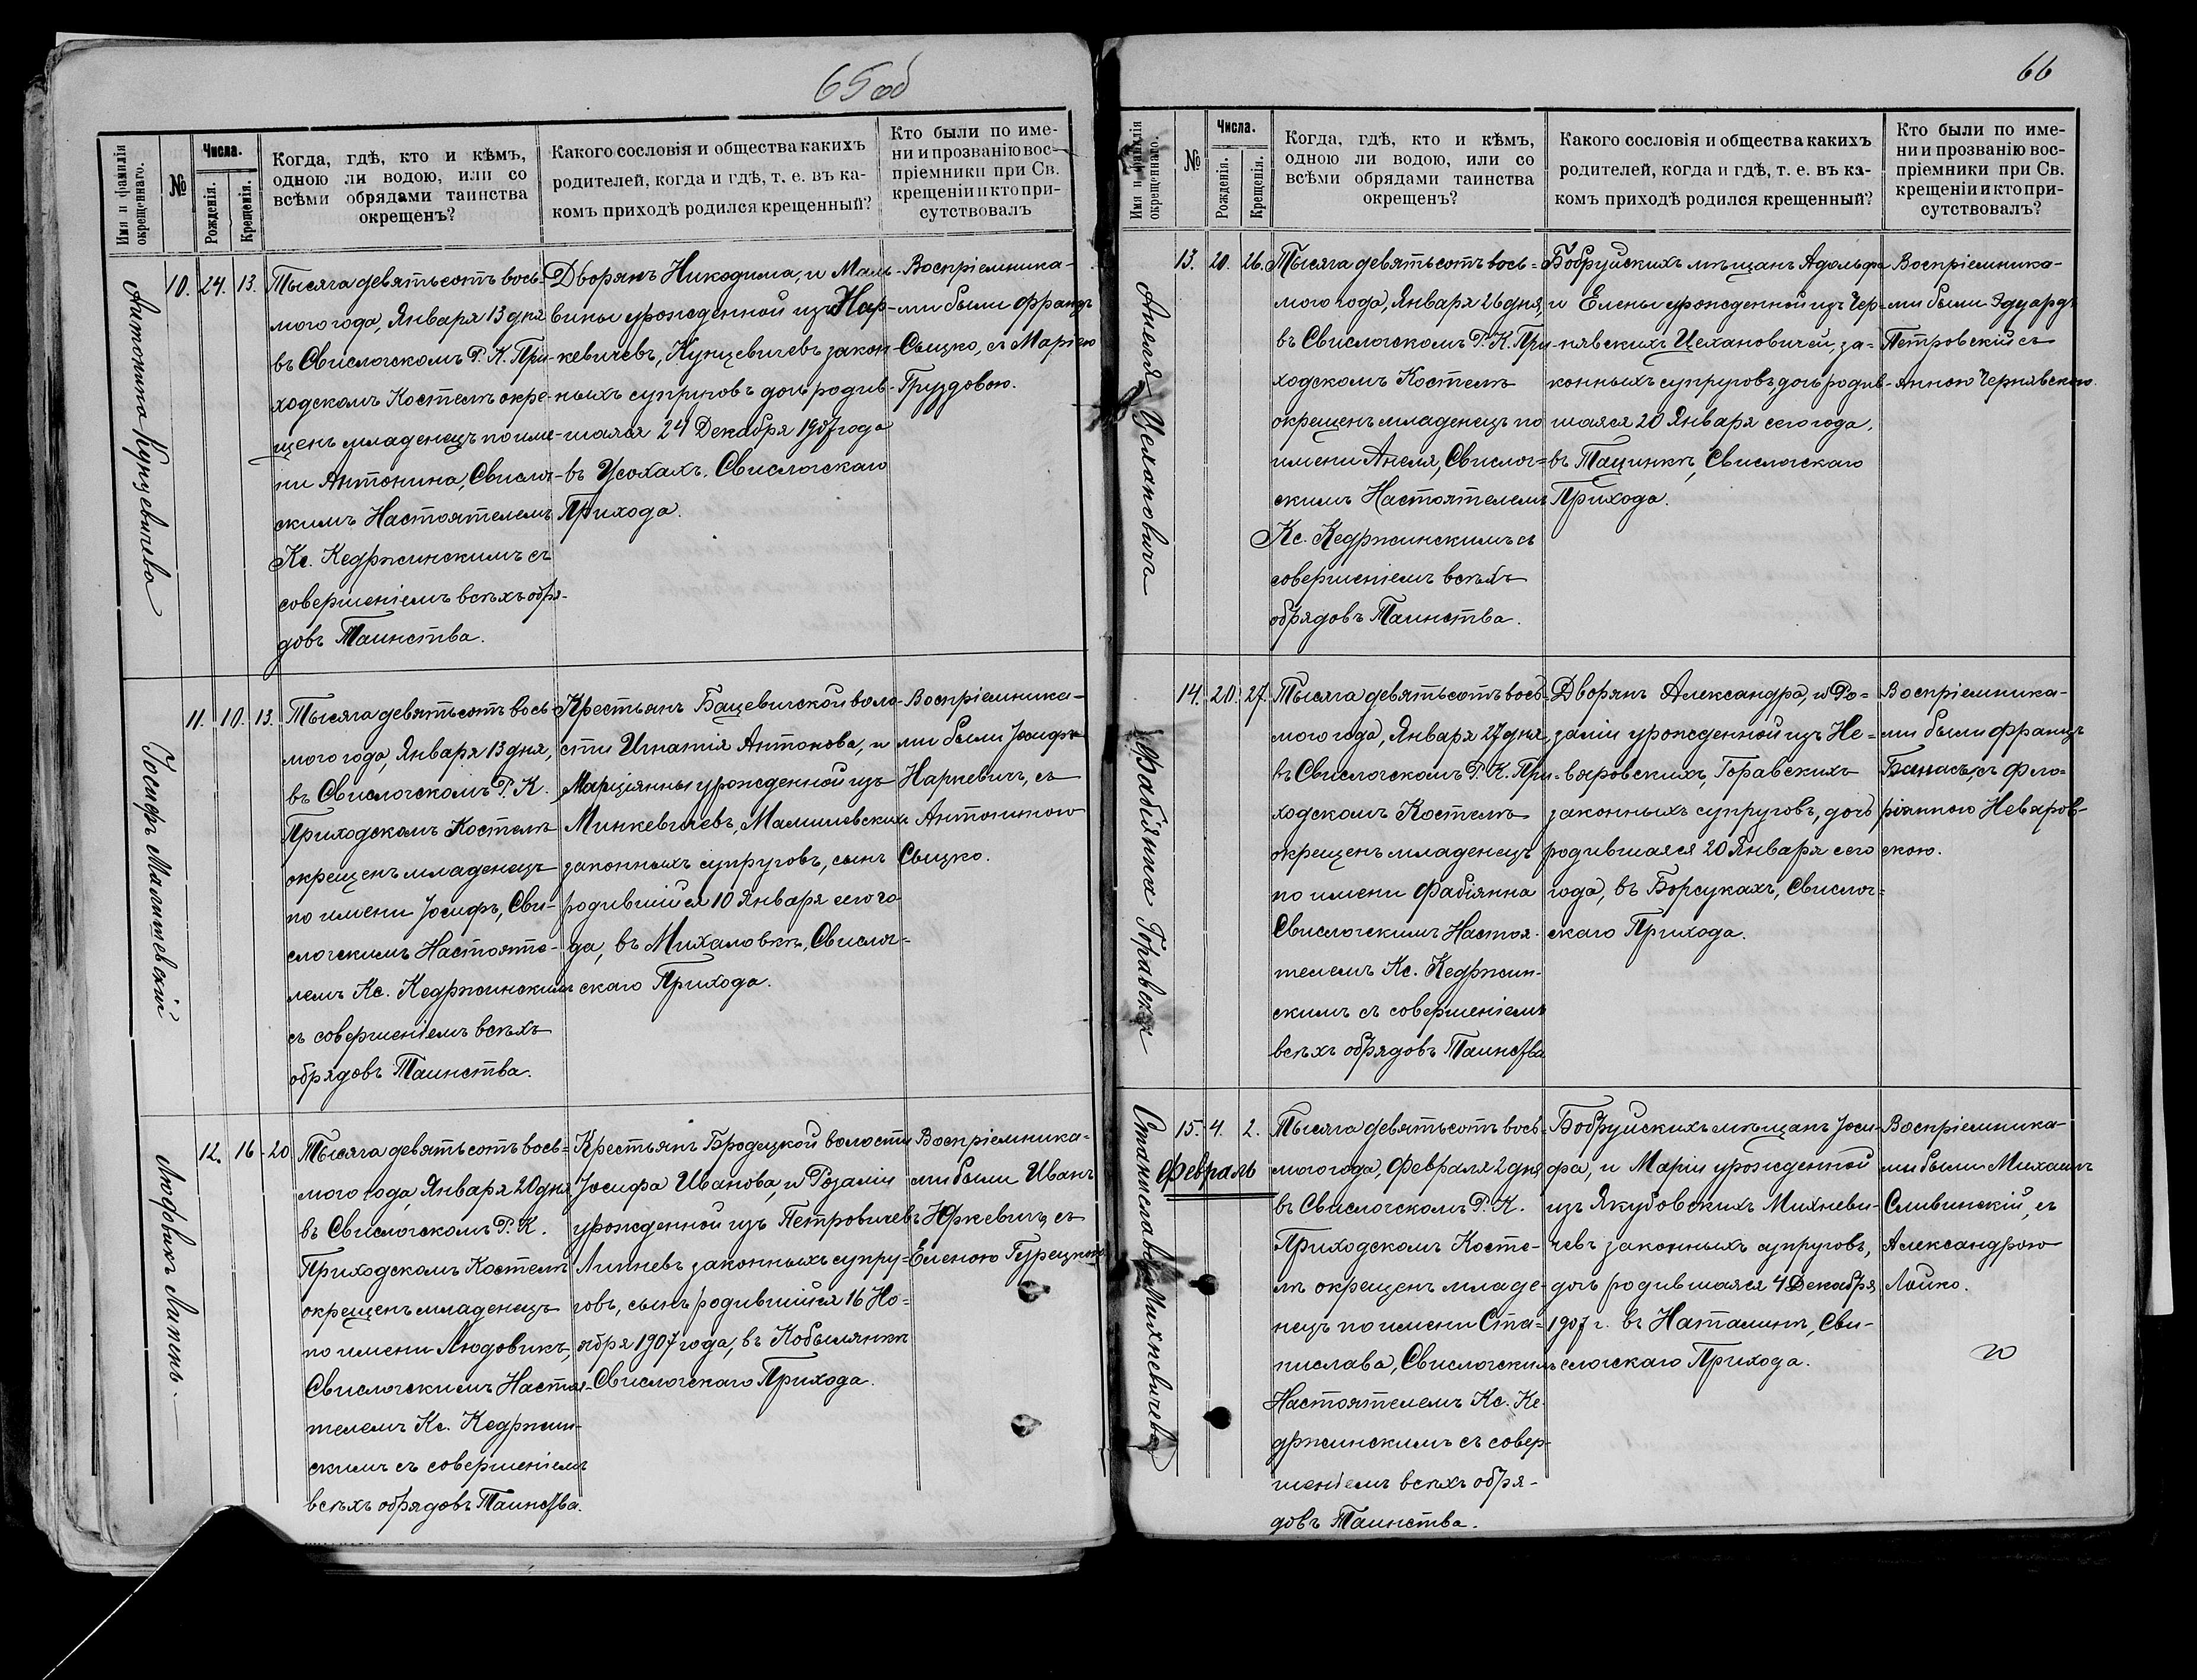 65об
Имя и фамилія окрещеннаго.
№
Числа.
Рожденія.
Крещенія.
Когда, гдѣ, кто и кѣмъ,
одною ли водою, или со
всѣми обрядами таинства
окрещенъ?
Какого сословія и общества какихъ
родителей, когда и гдѣ, т. е. въ ка-
комъ приходѣ родился крещенный?
Кто были по име-
ни и прозванію вос-
пріемники при Св.
крещеніи и кто при-
сутствовалъ
Антонина Кунцевичева
10. 24. 13.
Тысяча девятьсотъ вось-
мого года, Января 13 дня
въ Свислочскомъ Р. К. При-
ходскомъ Костелѣ окре-
щенъ младенецъ по име-
ни Антонина, Свислоч-
скимъ Настоятелемъ
Кс. Кедржинскимъ съ
совершеніемъ всѣхъ обря-
довъ Таинства.
Дворянъ Никодима, и Маль-
вины урожденной изъ Нар-
кевичевъ, Кунцевичевъ закон-
ныхъ супруговъ дочь родив-
шаяся 24 Декабря 1907 года
въ Усохахъ. Свислочскаго
Прихода.
Воспріемника-
ми были Францъ
Сыцко, съ Маріею
Груздовою.
Іосифъ Малишевскій
11. 10. 13.
Тысяча девятьсотъ вось-
мого года, Января 13 дня,
въ Свислочскомъ Р. К.
Приходскомъ Костелѣ
окрещенъ младенецъ
по имени Іосифъ, Сви-
слочскимъ Настояте-
лемъ Кс. Кедржинскимъ
съ совершеніемъ всѣхъ
обрядовъ Таинства.
Крестьянъ Бацевичской воло-
сти Игнатія Антонова, и
Марціянны урожденной изъ
Минкевичевъ, Малишевскихъ
законныхъ супруговъ, сынъ
родившійся 10 Января сего го
да, въ Михаловкѣ, Свислоч-
скаго Прихода.
Воспріемника-
ми были Іосифъ
Наркевичъ, съ
Антониною
Сыцко.
Людовикъ Липень.
12. 16 - 20
Тысяча девятьсотъ вось=
мого года, Января 20 дня
въ Свислочскомъ Р. К.
Приходскомъ Костелѣ
окрещенъ младенецъ
по имени Людовикъ,
Свислочскимъ Настоя-
телемъ Кс. Кедржин-
скимъ съ совершеніемъ
всѣхъ обрядовъ Таинства.
Крестьянъ Бродецкой волости
Іосифа Иванова, и Розаліи
урожденной изъ Петровичевъ
Липневъ законныхъ супру-
говъ, сынъ родившійся 16 Но=
ября 1907 года, въ Кобылянкѣ
Свислочскаго Прихода.
Воспріемника-
ми были Иванъ
Юркевичъ, съ
Еленою Гурецкою
66
Имя и фамилія окрещеннаго.
№
Числа.
Рожденія.
Крещенія.
Когда, гдѣ, кто и кѣмъ,
одною ли водою, или со
всѣми обрядами таинства
окрещенъ?
Какого сословія и общества какихъ
родителей, когда и гдѣ, т. е. въ ка-
комъ приходѣ родился крещенный?
Кто были по име-
ни и прозванію вос-
пріемники при Св.
крещеніи и кто при-
сутствовалъ?
Анеля Цехановичъ
13. 20. 26.
Тысяча девятьсотъ вось=
мого года, Января 26 дня,
въ Свислочскомъ Р. К. При-
ходскомъ Костелѣ
окрещенъ младенецъ по
имени Анеля, Свислоч=
скимъ Настоятелемъ
Кс. Кедржинскимъ съ
совершеніемъ всѣхъ
обрядовъ Таинства.
Бобруйскихъ мѣщанъ Адольфа
и Елены урожденной изъ Чер-
нявскихъ Цехановичей, за-
конныхъ супруговъ, дочь родив-
шаяся 20 Января сего года,
въ Тацинкѣ, Свислочскаго
Прихода.
Воспріемника-
ми были Эдуардъ
Петровскій съ
Анною Чернявскою.
Фабіянна Горавская
14. 20. 27.
Тысяча девятьсотъ вось-
мого года, Января 27 дня,
въ Свислочскомъ Р. К. При-
ходскомъ Костелѣ
окрещенъ младенецъ
по имени Фабіянна
Свислочскимъ Настоя-
телемъ Кс. Кедржин-
скимъ съ совершеніемъ
всѣхъ обрядовъ Таинства
Дворянъ Александра, и Ро=
заліи урожденной изъ Не=
вяровскихъ, Горавскихъ
законныхъ супруговъ, дочь
родившаяся 20 Января сего
года, въ Борсукахъ, Свислоч=
скаго Прихода.
Воспріемника-
ми были Францъ
Банасъ, съ Фло-
ріанною Невяров-
скою.
Станислава Михневичева
15. 4. 2.
Февраль
Тысяча девятьсотъ вось-
мого года, Февраля 2 дня,
въ Свислочскомъ Р. К.
Приходскомъ Косте-
лѣ окрещенъ младе-
нецъ по имени Ста=
нислава, Свислочскимъ
Настоятелемъ Кс. Ке-
држинскимъ съ совер-
шеніемъ всѣхъ обря-
довъ Таинства.
Бобруйскихъ мѣщанъ Іоси-
фа, и Маріи урожденной
изъ Якубовскихъ Михневи-
чевъ законныхъ супруговъ,
дочь родившаяся 4 Декабря
1907 г. въ Наталинѣ, Сви-
слочскаго Прихода.
Воспріемника-
ми были Михаилъ
Сливинскій, съ
Александрою
Лойко.